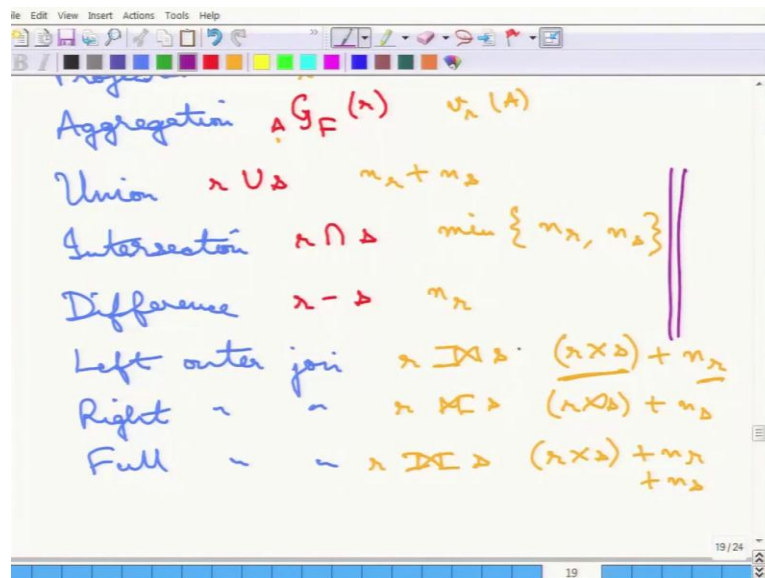 File Edit View Insert Actions Tools Help
B I
Aggregation A G F (r) v_r (A)
Union r ∪ s n_r + n_s
Intersection r ∩ s min { n_r, n_s }
Difference r - s n_r
Left outer join r ⟕ s (r⋈s) + n_r
Right " " r ⟖ s (r⋈s) + n_s
Full " " r ⟗ s (r⋈s) + n_r
+ n_s
19 / 24
19